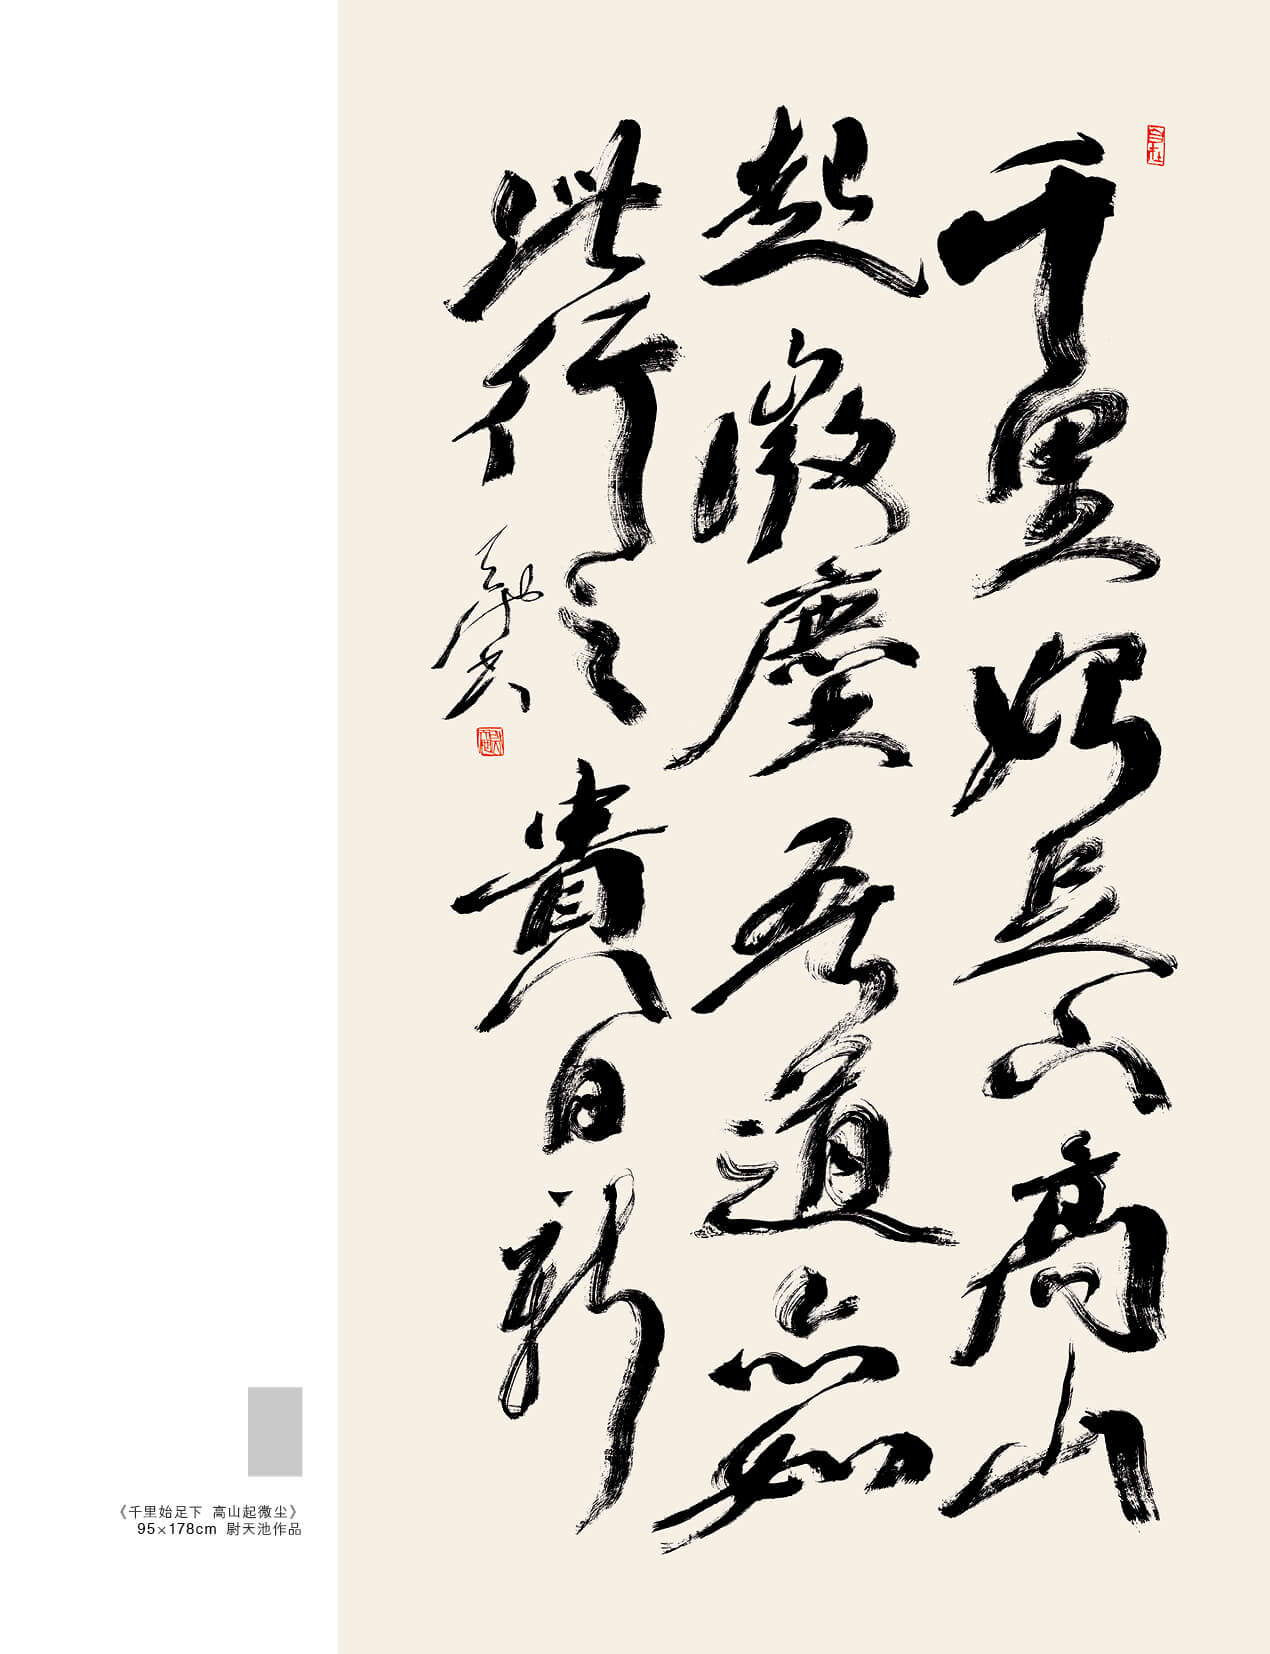 千里始足下高山
起微塵吾道亦如
此行之貴日新
天池書
《千里始足下 高山起微尘》
95×178cm 尉天池作品